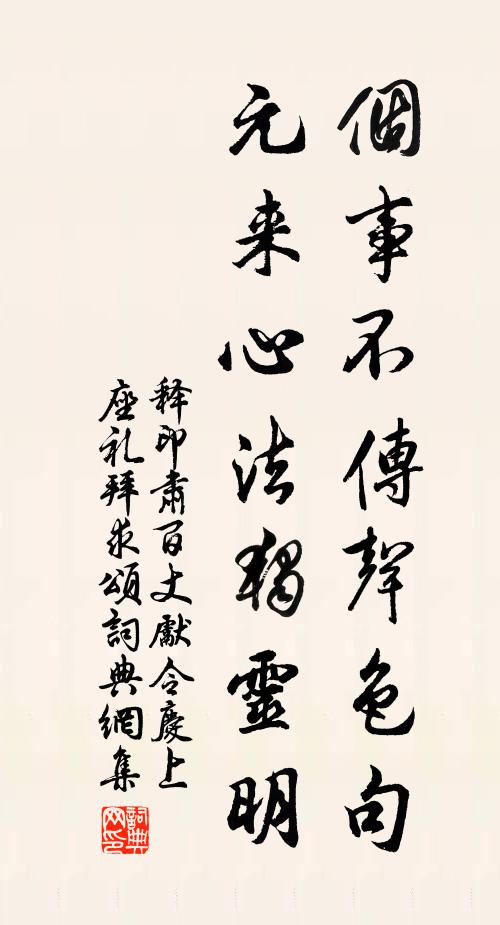 個事不傳聲色句
元来心法獨靈明
释印肅百丈獻令慶上
座礼拜求頌詞典網集
詞典网印